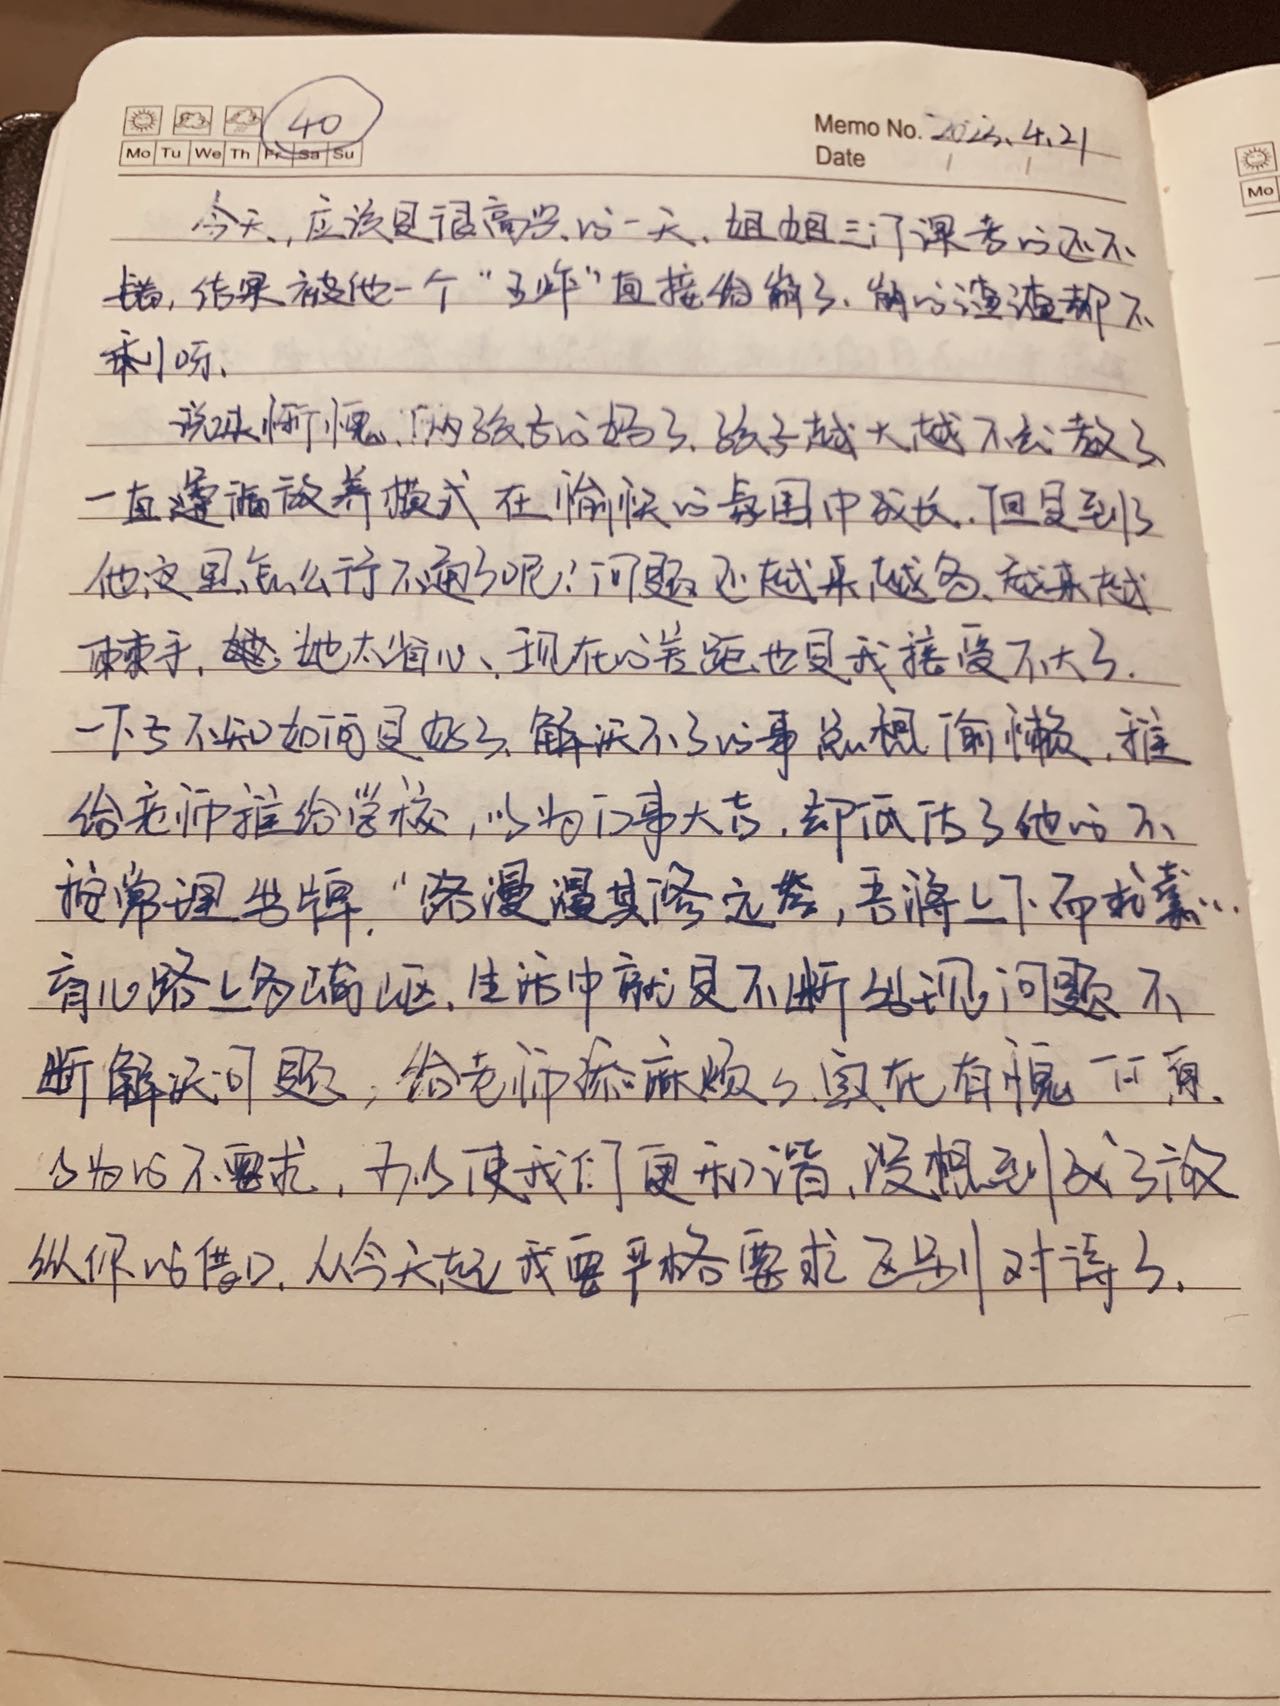 40
Memo No. 2023.4.21
Mo Tu We Th Fr Sa Su
Date
Mo
今天,应该是很高兴的一天,姐姐三门课考的还不
错,结果被他一个“五年”直接给崩了,崩的渣渣都不
剩呀、
说来惭愧,两孩子的妈了,孩子越大越不会教了、
一直遵循放养模式在愉快的氛围中成长,但是到了
他这里怎么行不通了呢?问题还越来越多、越来越
棘手,她太省心、现在的差距也是我接受不大了.
一下子不知如何是好了、解决不了的事总想偷懒,推
给老师推给学校,以为万事大吉,却低估了他的不
按常理出牌,“路漫漫其修远兮,吾将上下而求索…
育儿路上多崎岖,生活中就是不断出现问题不
断解决问题,给老师添麻烦了,实在有愧
以为的不要求,可以使我们更和谐,没想到成了放
纵你的借口,从今天起我要严格要求区别对待了.